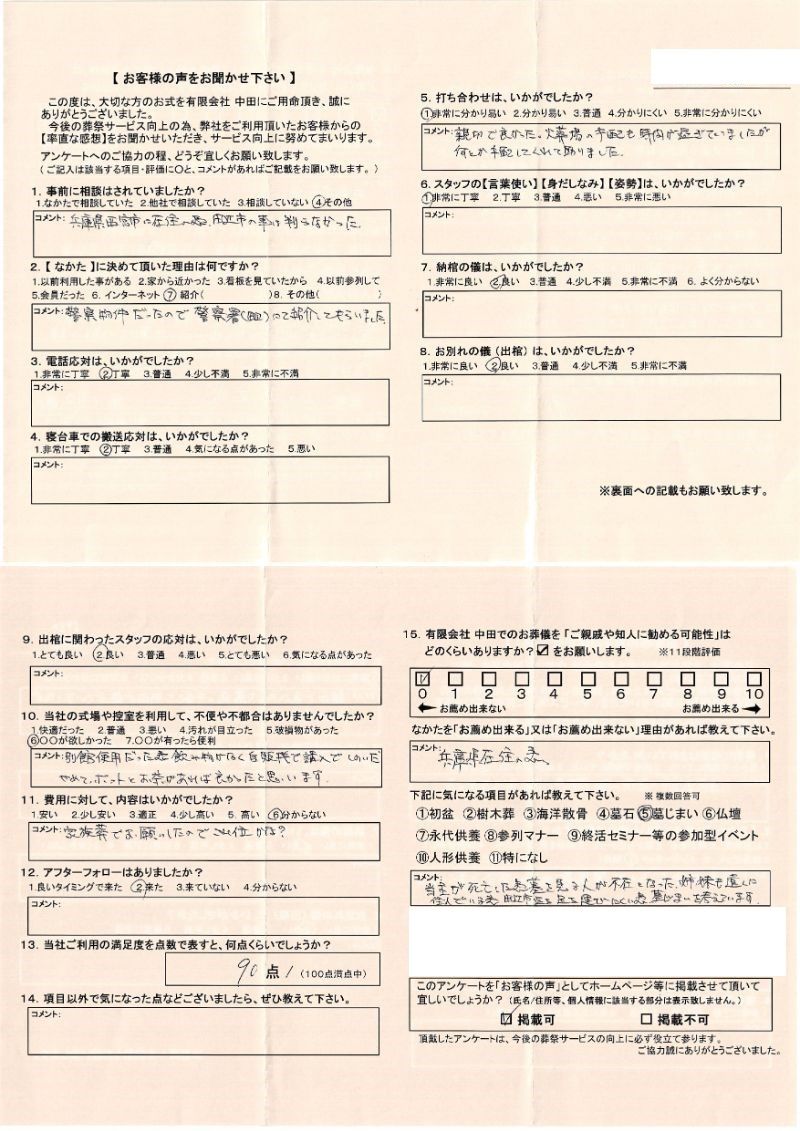 【 お客様の声をお聞かせ下さい 】
この度は、大切な方のお式を有限会社 中田にご用命頂き、誠に
ありがとうございました。
今後の葬祭サービス向上の為、弊社をご利用頂いたお客様からの
【率直な感想】をお聞かせいただき、サービス向上に努めてまいります。
アンケートへのご協力の程、どうぞ宜しくお願い致します。
（ご記入は該当する項目・評価に〇と、コメントがあればご記載をお願い致します。）
1. 事前に相談はされていましたか？
1.なかたで相談していた 2.他社で相談していた 3.相談していない ④その他
コメント: 兵庫県西宮市に在住の為、田辺市の事は判らなかった。
2.【 なかた 】に決めて頂いた理由は何ですか？
1.以前利用した事がある 2.家から近かった 3.看板を見ていたから 4.以前参列して
5.会員だった 6. インターネット ⑦ 紹介( )8. その他( )
コメント: 警察物件だったので警察署(田辺)にて紹介してもらいました
3. 電話応対は、いかがでしたか？
1.非常に丁寧 ②丁寧 3.普通 4.少し不満 5.非常に不満
コメント:
4. 寝台車での搬送応対は、いかがでしたか？
1.非常に丁寧 ②丁寧 3.普通 4.気になる点があった 5.悪い
コメント:
5. 打ち合わせは、いかがでしたか？
①非常に分かり易い 2.分かり易い 3.普通 4.分かりにくい 5.非常に分かりにくい
コメント: 親切で良かった。火葬場の手配も時間が過ぎていましたが
何とか手配してくれて助りました。
6. スタッフの【言葉使い】【身だしなみ】【姿勢】は、いかがでしたか？
①非常に丁寧 2.丁寧 3.普通 4.悪い 5.非常に悪い
コメント:
7. 納棺の儀は、いかがでしたか？
1.非常に良い ②良い 3.普通 4.少し不満 5.非常に不満 6. よく分からない
コメント:
8. お別れの儀（出棺）は、いかがでしたか？
1.非常に良い ②良い 3.普通 4.少し不満 5.非常に不満
コメント:
※裏面への記載もお願い致します。
9. 出棺に関わったスタッフの応対は、いかがでしたか？
1.とても良い ②良い 3.普通 4.悪い 5.とても悪い 6.気になる点があった
コメント:
10. 当社の式場や控室を利用して、不便や不都合はありませんでしたか？
1.快適だった 2.普通 3.悪い 4.汚れが目立った 5.破損物があった
⑥〇〇が欲しかった 7.〇〇が有ったら便利
コメント: 別館使用だった為飲み物がなく自販機で購入でしのいだ
やめて、ポットとお茶があれば良かったと思います。
11. 費用に対して、内容はいかがでしたか？
1.安い 2.少し安い 3.適正 4.少し高い 5. 高い ⑥分からない
コメント: 家族葬でお願いしたのでこの位かな？
12. アフターフォローはありましたか？
1.良いタイミングで来た ②来た 3.来ていない 4.分からない
コメント:
13. 当社ご利用の満足度を点数で表すと、何点くらいでしょうか？
90 点 (100点満点中)
14. 項目以外で気になった点などございましたら、ぜひ教えて下さい。
コメント:
15. 有限会社 中田でのお葬儀を「ご親戚や知人に勧める可能性」は
どのくらいありますか？☑をお願いします。 ※11段階評価
0 1 2 3 4 5 6 7 8 9 10
お薦め出来ない お薦め出来る
なかたを「お薦め出来る」又は「お薦め出来ない」理由があれば教えて下さい。
コメント: 兵庫県在住の為
下記に気になる項目があれば教えて下さい。 ※ 複数回答可
①初盆 ②樹木葬 ③海洋散骨 ④墓石 ⑤墓じまい ⑥仏壇
⑦永代供養 ⑧参列マナー ⑨終活セミナー等の参加型イベント
⑩人形供養 ⑪特になし
コメント: 当主が死亡した為墓を見る人が不在となった。姉妹も遠くに
住んでいる為田辺市迄足を運びにくい為墓じまいを考えています。
このアンケートを「お客様の声」としてホームページ等に掲載させて頂いて
宜しいでしょうか？（氏名/住所等、個人情報に該当する部分は表示致しません。）
☑ 掲載可 □ 掲載不可
頂戴したアンケートは、今後の葬祭サービスの向上に必ず役立て参ります。
ご協力誠にありがとうございました。